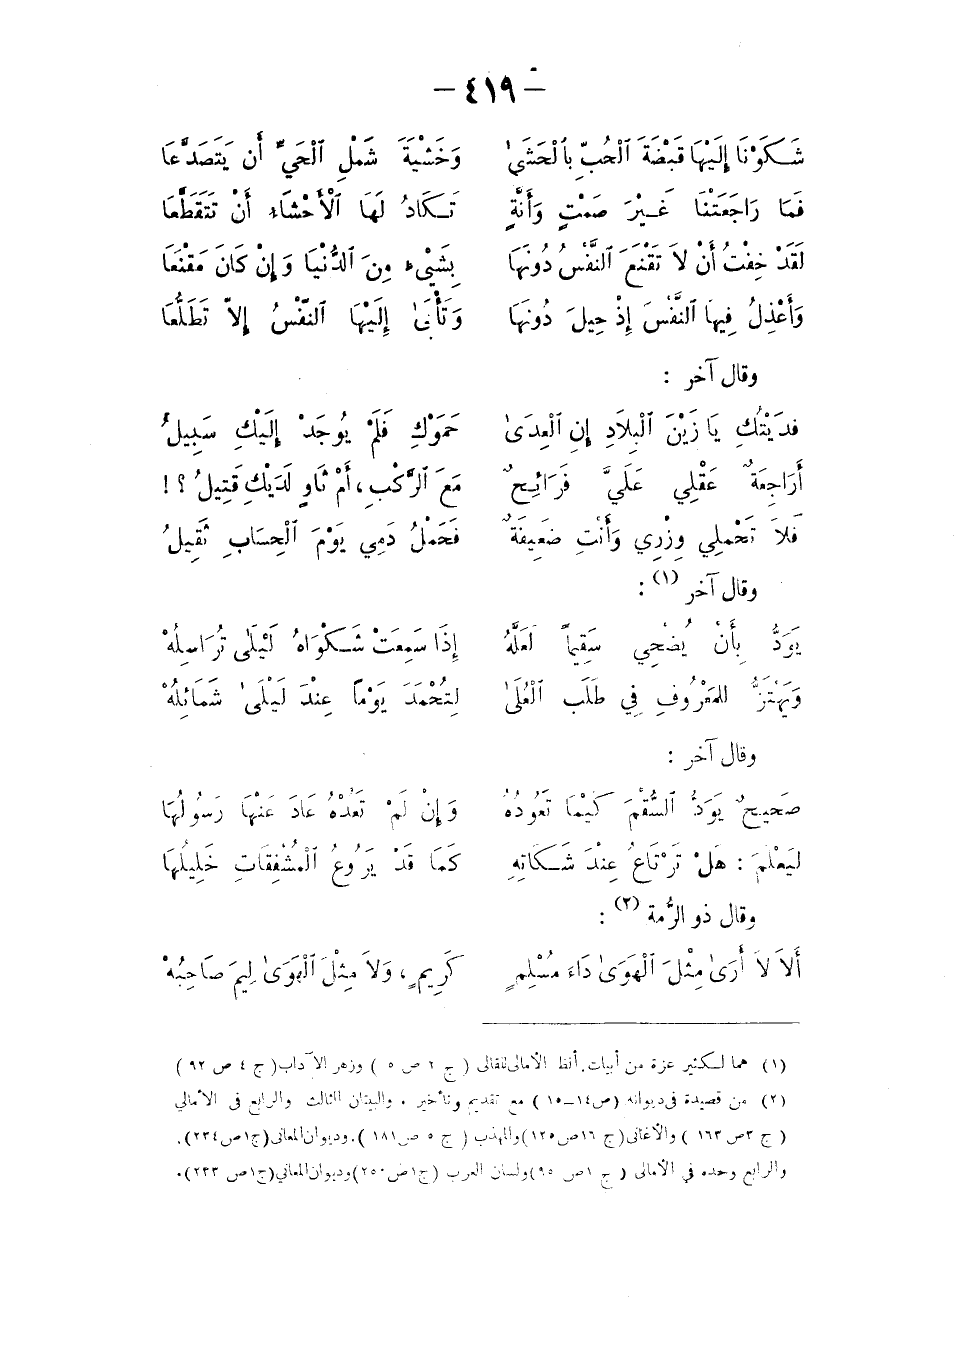 — ٤١٩ —
شَكَوْنَا إِلَيْهَا قَبْضَةَ ٱلْحُبِّ بِٱلْحَشَىٰ وَخَشْيَةَ شَمْلِ ٱلْحَيِّ أَن يَتَصَدَّعَا
فَمَا رَاجَعَتْنَا غَيْرَ صَمْتٍ وَأَنَّةٍ تَكَادُ لَهَا ٱلْأَحْشَاءُ أَنْ تَتَقَطَّعَا
لَقَدْ خِفْتُ أَنْ لاَ تَقْنَعَ ٱلنَّفْسُ دُونَهَا بِشَيْءٍ مِنَ ٱلدُّنْيَا وَإِنْ كَانَ مَقْنَعَا
وَأَعْذِلُ فِيهَا ٱلنَّفْسَ إِذْ حِيلَ دُونَهَا وَتَأْبَىٰ إِلَيْهَا ٱلنَّفْسُ إِلاَّ تَطَلُّعَا
وقال آخر :
فدَيْتُكِ يَا زَيْنَ ٱلْبِلاَدِ إِنِ ٱلْعِدَىٰ حَمَوْكِ فَلَمْ يُوجَدْ إِلَيْكِ سَبِيلُ
أَرَاجِعَةٌ عَقْلِي عَلَيَّ فَرَائِحٌ مَعَ ٱلرَّكْبِ، أَمْ ثَاوٍ لَدَيْكِ قَتِيلُ ؟ !
فَلاَ تَحْملِي وِزْرِي وَأَنْتِ ضَعِيفَةٌ فَحَمْلُ دَمِي يَوْمَ ٱلْحِسَابِ ثَقِيلُ
وقال آخر (١) :
يَوَدُّ بِأَنْ يُضْحِي سَقِيماً لَعَلَّهُ إِذَا سَمِعَتْ شَكْوَاهُ لَيْلَى تُرَاسِلُهْ
وَيَهْتَزُّ للمَعْرُوفِ فِي طَلَب ٱلْعُلَىٰ لِتُحْمَدَ يَوْماً عِنْدَ لَيْلَىٰ شَمَائِلُهْ
وقال آخر :
صَحِيحٌ يَوَدُّ ٱلسُّقْمَ كَيْمَا تَعُودُهُ وَإِنْ لَمْ تَعُدْهُ عَادَ عَنْهَا رَسُولُهَا
لِيَعْلَمَ : هَلْ تَرْتَاعُ عِنْدَ شَكَاتِهِ كَمَا قَدْ يَرُوعُ ٱلْمُشْفِقَاتِ خَلِيلُهَا
وقال ذو الرُّمة (٢) :
أَلاَ لاَ أَرَىٰ مِثْلَ ٱلْهَوَىٰ دَاءَ مُسْلِمٍ كَرِيمٍ، وَلاَ مِثْلَ ٱلْهَوَىٰ لِيمَ صَاحِبُهْ
(١) هما لكثير عزة من أبيات. أنظ الأمالى للقالى ( ج ٢ ص ٥ ) وزهر الآداب ( ج ٤ ص ٩٢ )
(٢) من قصيدة فى ديوانه (ص ١٤ـ١٥ ) مع تقديم وتأخير . والبيتان الثالث والرابع فى الأمالي
( ج ٣ ص ١٦٣ ) والأغانى (ج ١٦ ص ١٢٥) والمهذب ( ج ٥ ص ١٨١ ). وديوان المعانى (ج ١ ص ٢٣٤).
والرابع وحده في الأمالى ( ج ١ ص ٩٥) ولسان العرب (ج ١ ص ٢٥٠) وديوان المعاني (ج ١ ص ٢٣٣).